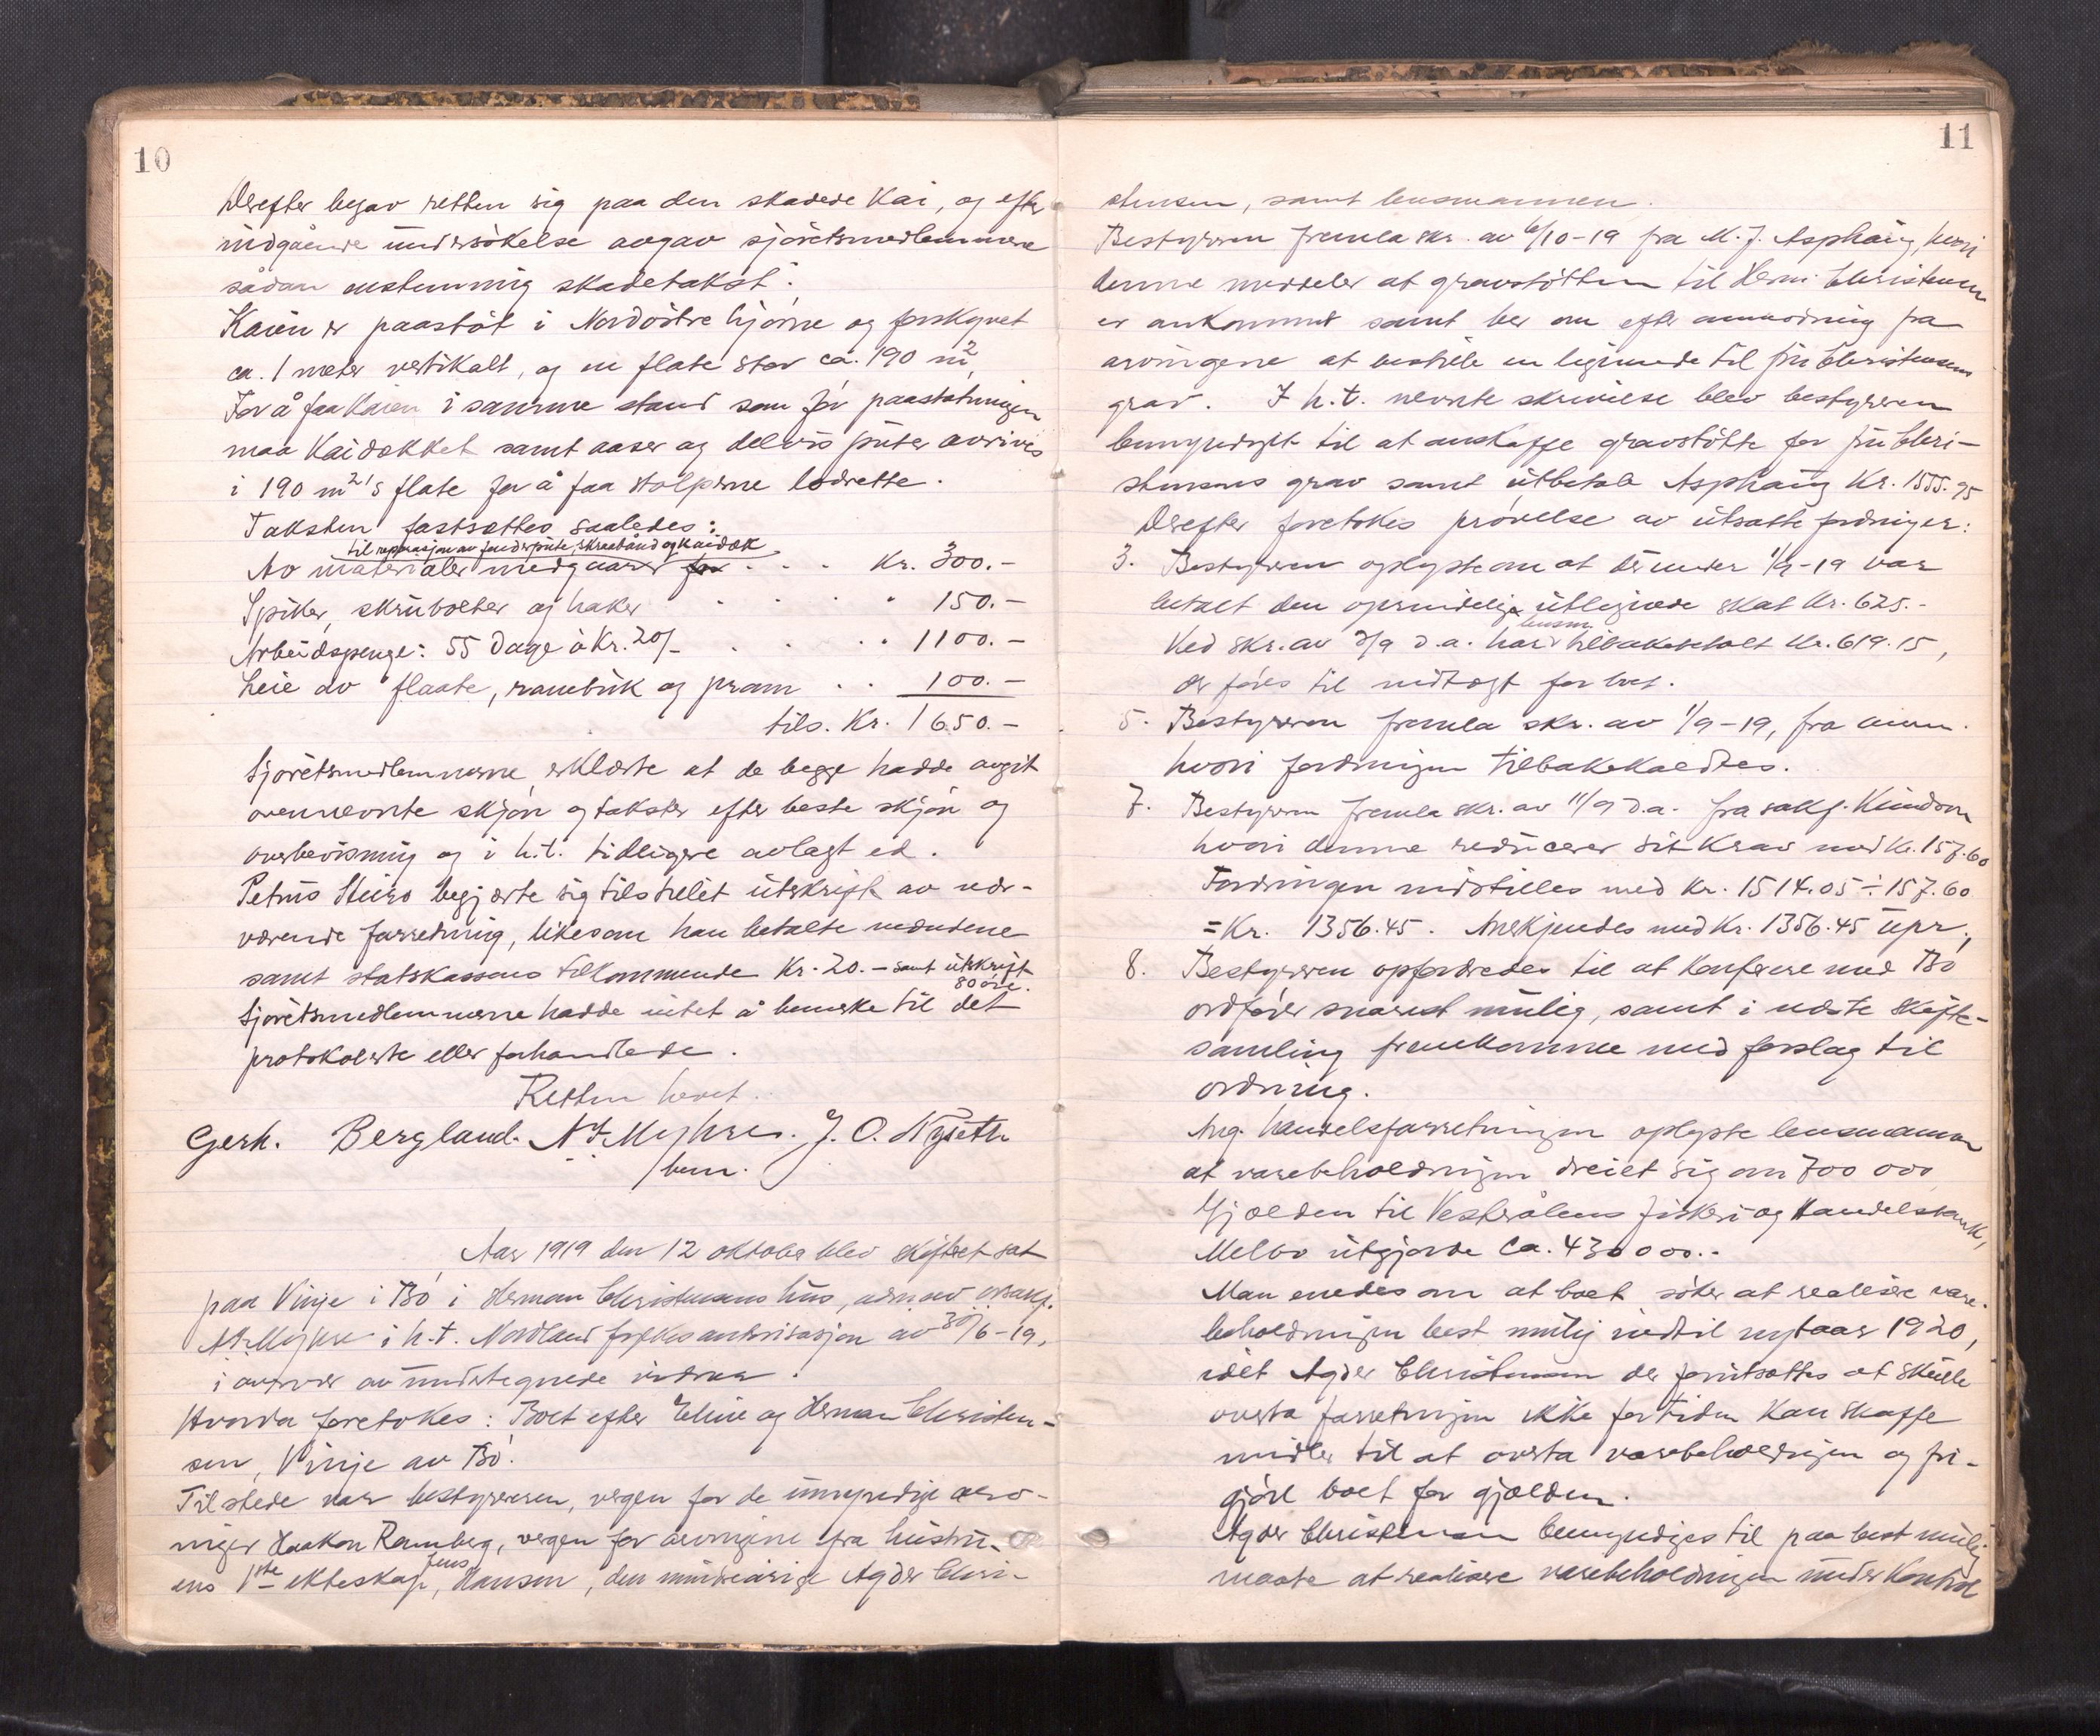 10
Derefter begav retten sig paa den skadede Kai, og efter
indgående undersökelse avgav sjöretsmedlemmene
sådan enstemmig skadetakst:
Kaien er paastöt i Nordöstre hjörne og forskyvet
ca. 1 meter vertikalt, og en flate stor ca. 190 m²,
For å faa Kaien i samme stand som för paastötningen
maa Kaidekket samt aaser og delvis puter avrives
i 190 m²'s flate for å faa stolperne lodrette.
Taksten fastsættes saaledes:
til reparasjon av fenderpute, skraabånd og Kaidæk
Av materialer medgaar for . . . Kr. 300.-
Spiker, skrubolter og haker . . . . . 150.-
Arbeidspenge: 55 Dage à Kr. 20/- . . . . 1100.-
Leie av flaate, rambuk og pram . . 100.-
tils. Kr. 1650.-
Sjöretsmedlemmerne erklærte at de begge hadde avgit
ovennevnte skjön og takster efter beste skjön og
overbevisning og i h.t. tidligere avlagt ed.
Petrus begjærte sig tilstillet utskrift av nær-
værende forretning, likesom han betalte
samt statskassens tilkommende Kr. 20.- samt utskrift
80 öre.
Sjöretsmedlemmerne hadde intet å bemerke til det
protokolerte eller forhandlede.
Retten hevet.
Gerh. Bergland. N. Myhre. J. O.
bem.
Aar 1919 den 12 oktober blev skifteret sat
paa Vinje i Bö i Herman Christensens hus, adm. av
Myhre i h.t. Nordland fylkes autorisasjon av 30/6-19,
i overvær av undertegnede vidner.
Hvorda foretokes: Boet efter Eline og Herman Christen-
sen, Vinje av Bö.
Tilstede var bestyreren, vergen for de umyndige arv-
inger Haakon Ramberg, vergen for arvingene fra hustru-
Jens
ens 1ste ekteskap, Hansen, den mindreårige Agder Chri-
11
stensen, samt lensmannen.
Bestyreren fremla skr. av 6/10-19 fra M. J. Asphaug, hvori
denne meddeler at gravstötten til Herm. Christensen
er ankommet samt ber om efter anmodning fra
arvingene at bestille en lignende til fru Christensens
grav. I h.t. nevnte skrivelse blev bestyreren
bemyndiget til at anskaffe gravstötte for fru Chri-
stensens grav samt utbetale Asphaug Kr. 1555.95
Derefter foretokes prövelse av utsatte fordringer:
3. Bestyreren oplyste om at der under 1/9-19 var
betalt den oprindelige utlignede skat Kr. 625.-
lensm.
Ved skr. av 3/9 d.a. har tilbakebetalt Kr. 619.15,
der föres til indtægt for boet.
5. Bestyreren fremla skr. av 1/9-19, fra anm.
hvori fordringen tilbakekaldtes.
7. Bestyreren fremla skr. av 11/9 d.a. fra sakf.
hvori denne reducerer sit Krav med Kr. 157.60
Fordringen indstilles med Kr. 1514.05 ÷ 157.60
= Kr. 1356.45. Anerkjendes med Kr. 1356.45 upr.
8. Bestyreren opfordredes til at konferere med Bö
ordförer snarest mulig, samt i neste skifte-
samling fremkomme med forslag til
ordning.
Ang. handelsforretningen oplyste lensmannen
at varebeholdningen dreiet sig om 700 000
Gjælden til Vesterålens fiskeri og Handelsbank,
Melbo utgjorde ca. 430 000.-
Man enedes om at boet söker at realisere vare-
beholdningen best mulig indtil nytaar 1920,
idet Agder Christensen der forutsættes at skulle
overta forretningen ikke for tiden kan skaffe
midler til at overta varebeholdningen og fri-
gjöre boet for gjælden.
Agder Christensen bemyndiges til paa best mulig
maate at realisere varebeholdningen under Kontrol